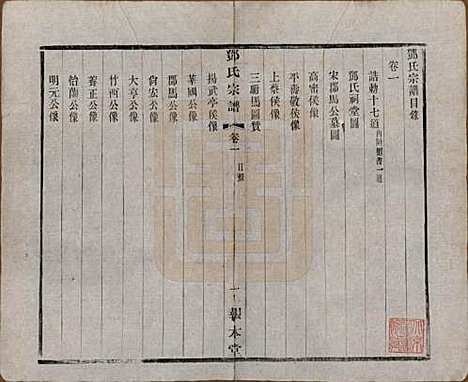 鄧氏宗譜目錄
卷一
誥勅十七道
鄧氏祠堂圖
宋郡馬公墓圖
高密侯像
平壽敬侯像
上蔡侯像
三顧馬圖贊
鄧氏宗譜
卷一
目錄
一
報本堂
揚武亭侯像
華國公像
郡馬公像
尙宏公像
大亨公像
竹西公像
養正公像
怡蘭公像
明元公像